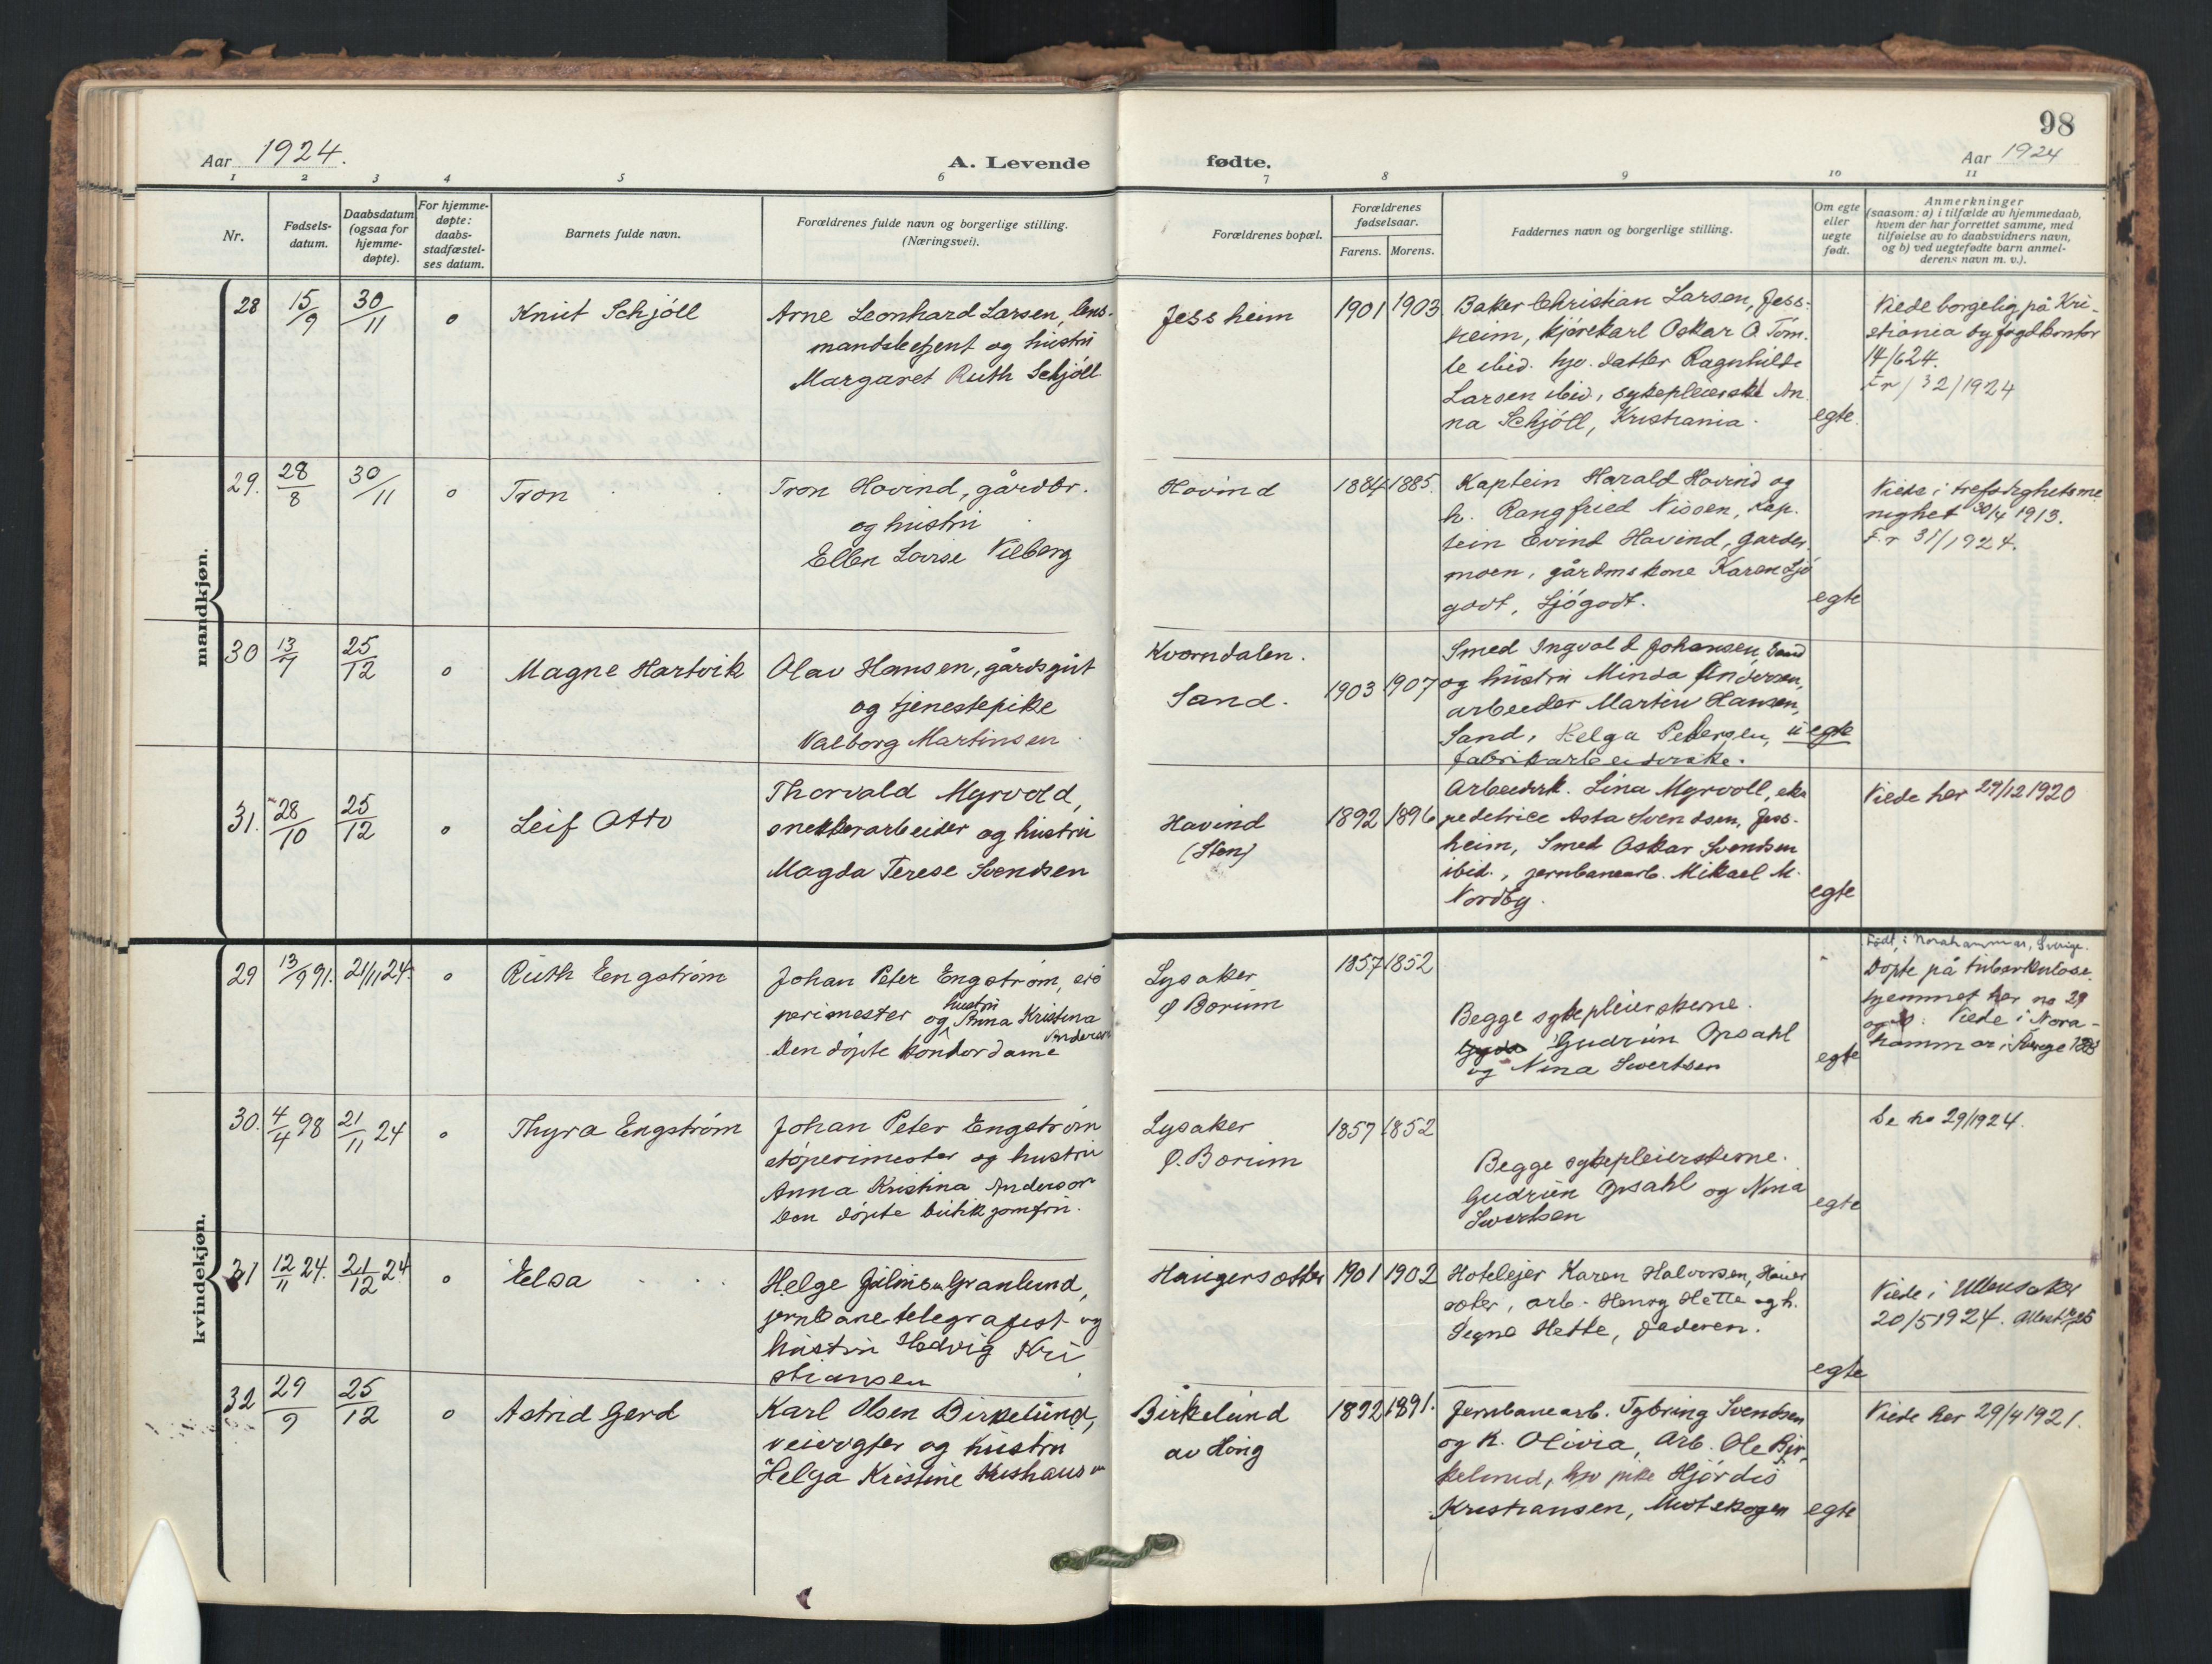 98
Aar 1924.
A. Levende fødte.
Aar 1924
1 2 3 4 5 6 7 8 9 10 11
Nr.
Fødsels-
datum.
Daabsdatum
(ogsaa for
hjemme-
døpte).
For hjemme-
døpte:
daabs-
stadfæstel-
ses datum.
Barnets fulde navn.
Forældrenes fulde navn og borgerlige stilling.
(Næringsvei).
Forældrenes bopæl.
Forældrenes
fødselsaar.
Farens. Morens.
Faddernes navn og borgerlige stilling.
Om egte
eller
uegte
født.
Anmerkninger
(saasom: a) i tilfælde av hjemmedaab,
hvem der har forrettet samme, med
tilføielse av to daabsvidners navn,
og b) ved uegtefødte barn anmel-
derens navn m. v.).
mandkjøn.
28
15/9
30/11
o
Knut Schjöll
Arne Leonhard Larsen, lens-
mandsbetjent og hustru
Margaret Ruth Schjöll
Jessheim
1901 1903
Baker Christian Larsen, Jess-
heim, kjørekarl Oskar O. Töm-
te ibid. hjv. datter Ragnhild
Larsen ibid., sykepleierske An-
na Schjöll, Kristiania.
egte.
Viede borgelig på Kri-
stiania byfogdkontor
14/624.
Fr/32/1924
29.
28/8
30/11
o
Tron
Tron Hovind, gårdbr.
og hustru
Ellen Lovise Vilberg
Hovind
1884 1885.
Kaptein Harald Hovind og
h. Rangfried Nissen, kap.
tein Eivind Hovind, Garder-
moen, gårdmskone Karen Ljö
godt, Ljögodt.
egte
nighet 30/4 1913.
F.r 31/1924.
30
13/7
25/12
o
Magne Hartvik
Olav Hansen, gårdsgut
og tjenestepike
Valborg Martinsen
Kverndalen.
Sand.
1903 1907
Smed Ingvald Johansen, Sand
og hustru Minda Andersen,
arbeider Martin Hansen,
Sand, Helga Pedersen,
fabrikarbeiderske.
uegte
31.
28/10
25/12
o
Leif Otto
Thorvald Myrvold,
snekkerarbeider og hustru
Magda Terese Svendsen
Hovind
(Sten)
1892 1896
Arbeidersk. Lina Myrvoll, eks
peditrice Asta Svendsen, Jess-
heim, Smed Oskar Svendsen
ibid., jernbanearb. Mikael M.
Nordby.
egte
Viede her 27/12 1920
kvindekjøn.
29
13/9 91.
21/11 24.
o
Ruth Engström
Johan Peter Engström, stö
perimester og hustru Anna Kristina
Anderson
Den döpte kontordame
Lysaker
Ø Bærum
1857 1852
Begge sykepleierskerne.
Gudrun Opsahl
og Nina Sivertsen
egte
Födt i Norahammar, Sverige.
Döpte på tuberkulose-
hjemmet her no 29
og 30. Viede i Nora-
hammar i Sverige
30.
4/4 98
21/11 24
o
Thyra Engström
Johan Peter Engström
stöperimester og hustru
Anna Kristina Anderson
Den döpte butikjomfru.
Lysaker
Ø. Bærum
1857 1852
Begge sykepleierskerne.
Gudrun Opsahl og Nina
Sivertsen
egte
Se no 29/1924.
31
12/11 24.
21/12 24
o
Elsa
Helge Granlund,
jernbanetelegrafist og
hustru Hedvig Kri
stiansen
Haugersæter
1901 1902
Hotelejer Karen Halvorsen, Hauer
sæter, arb. Henry Hette og h.
Signe Hette, faderen.
egte
Viede i Ullensaker
20/5 1924.
32
29/9
25/12
o
Astrid Gerd
Karl Olsen Birkelund,
veivogter og hustru
Helga Kristine
Birkelund
av Hönig
1892 1891.
Jernbanearb. Tybring Svendsen
og h. Olivia, Arb. Ole Bir-
kelund, hjv pike Hjördis
Kristiansen,
egte
Viede her 29/4 1921.